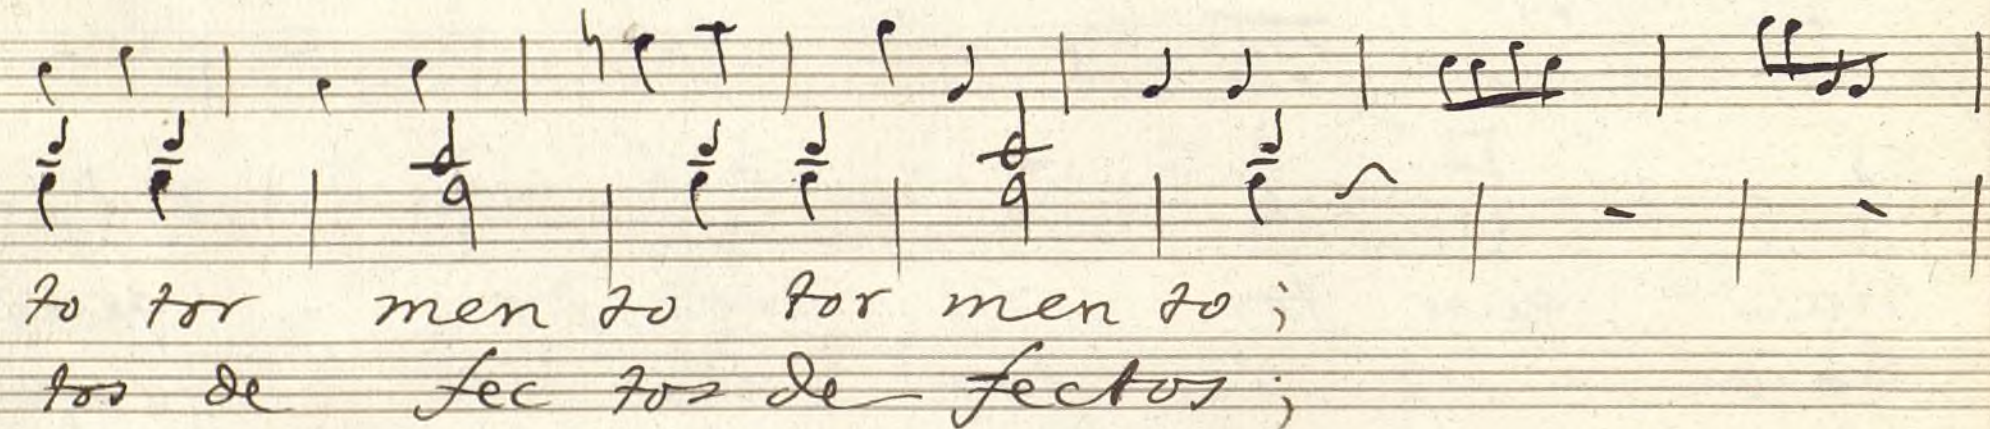 to tor men to tor men to;
tos de fec tos de fectos;